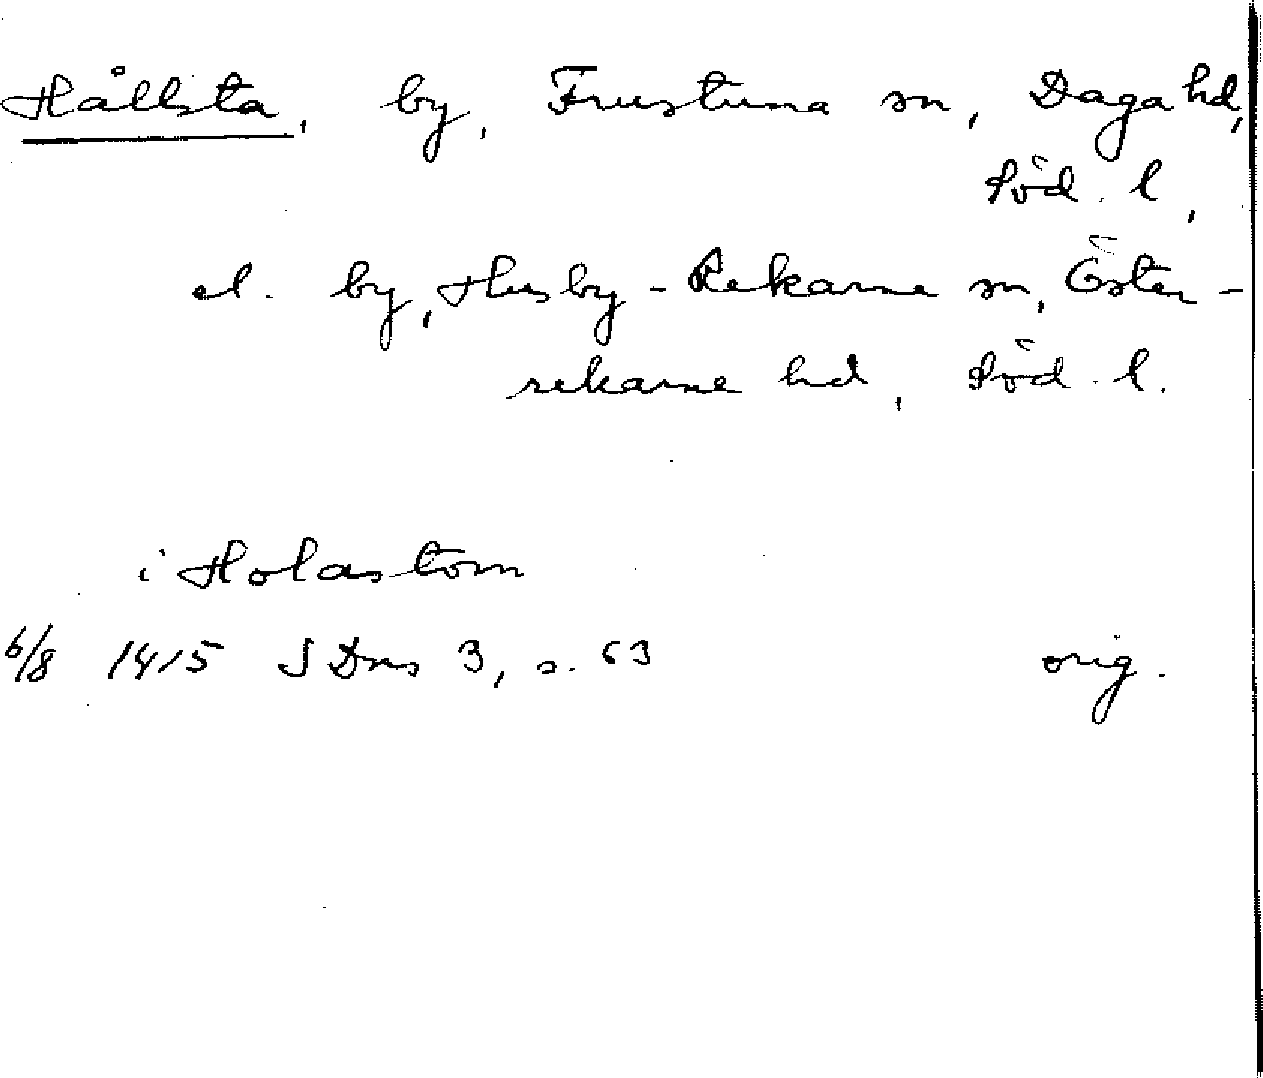 Hållsta, by, Frustuna sn, Daga hd,
Söd. l,
el. by, Husby-Rekarne sn, Öster-
rekarne hd, Söd. l.
i Holastom
6/8 1415 SDns 3, s. 63 orig.